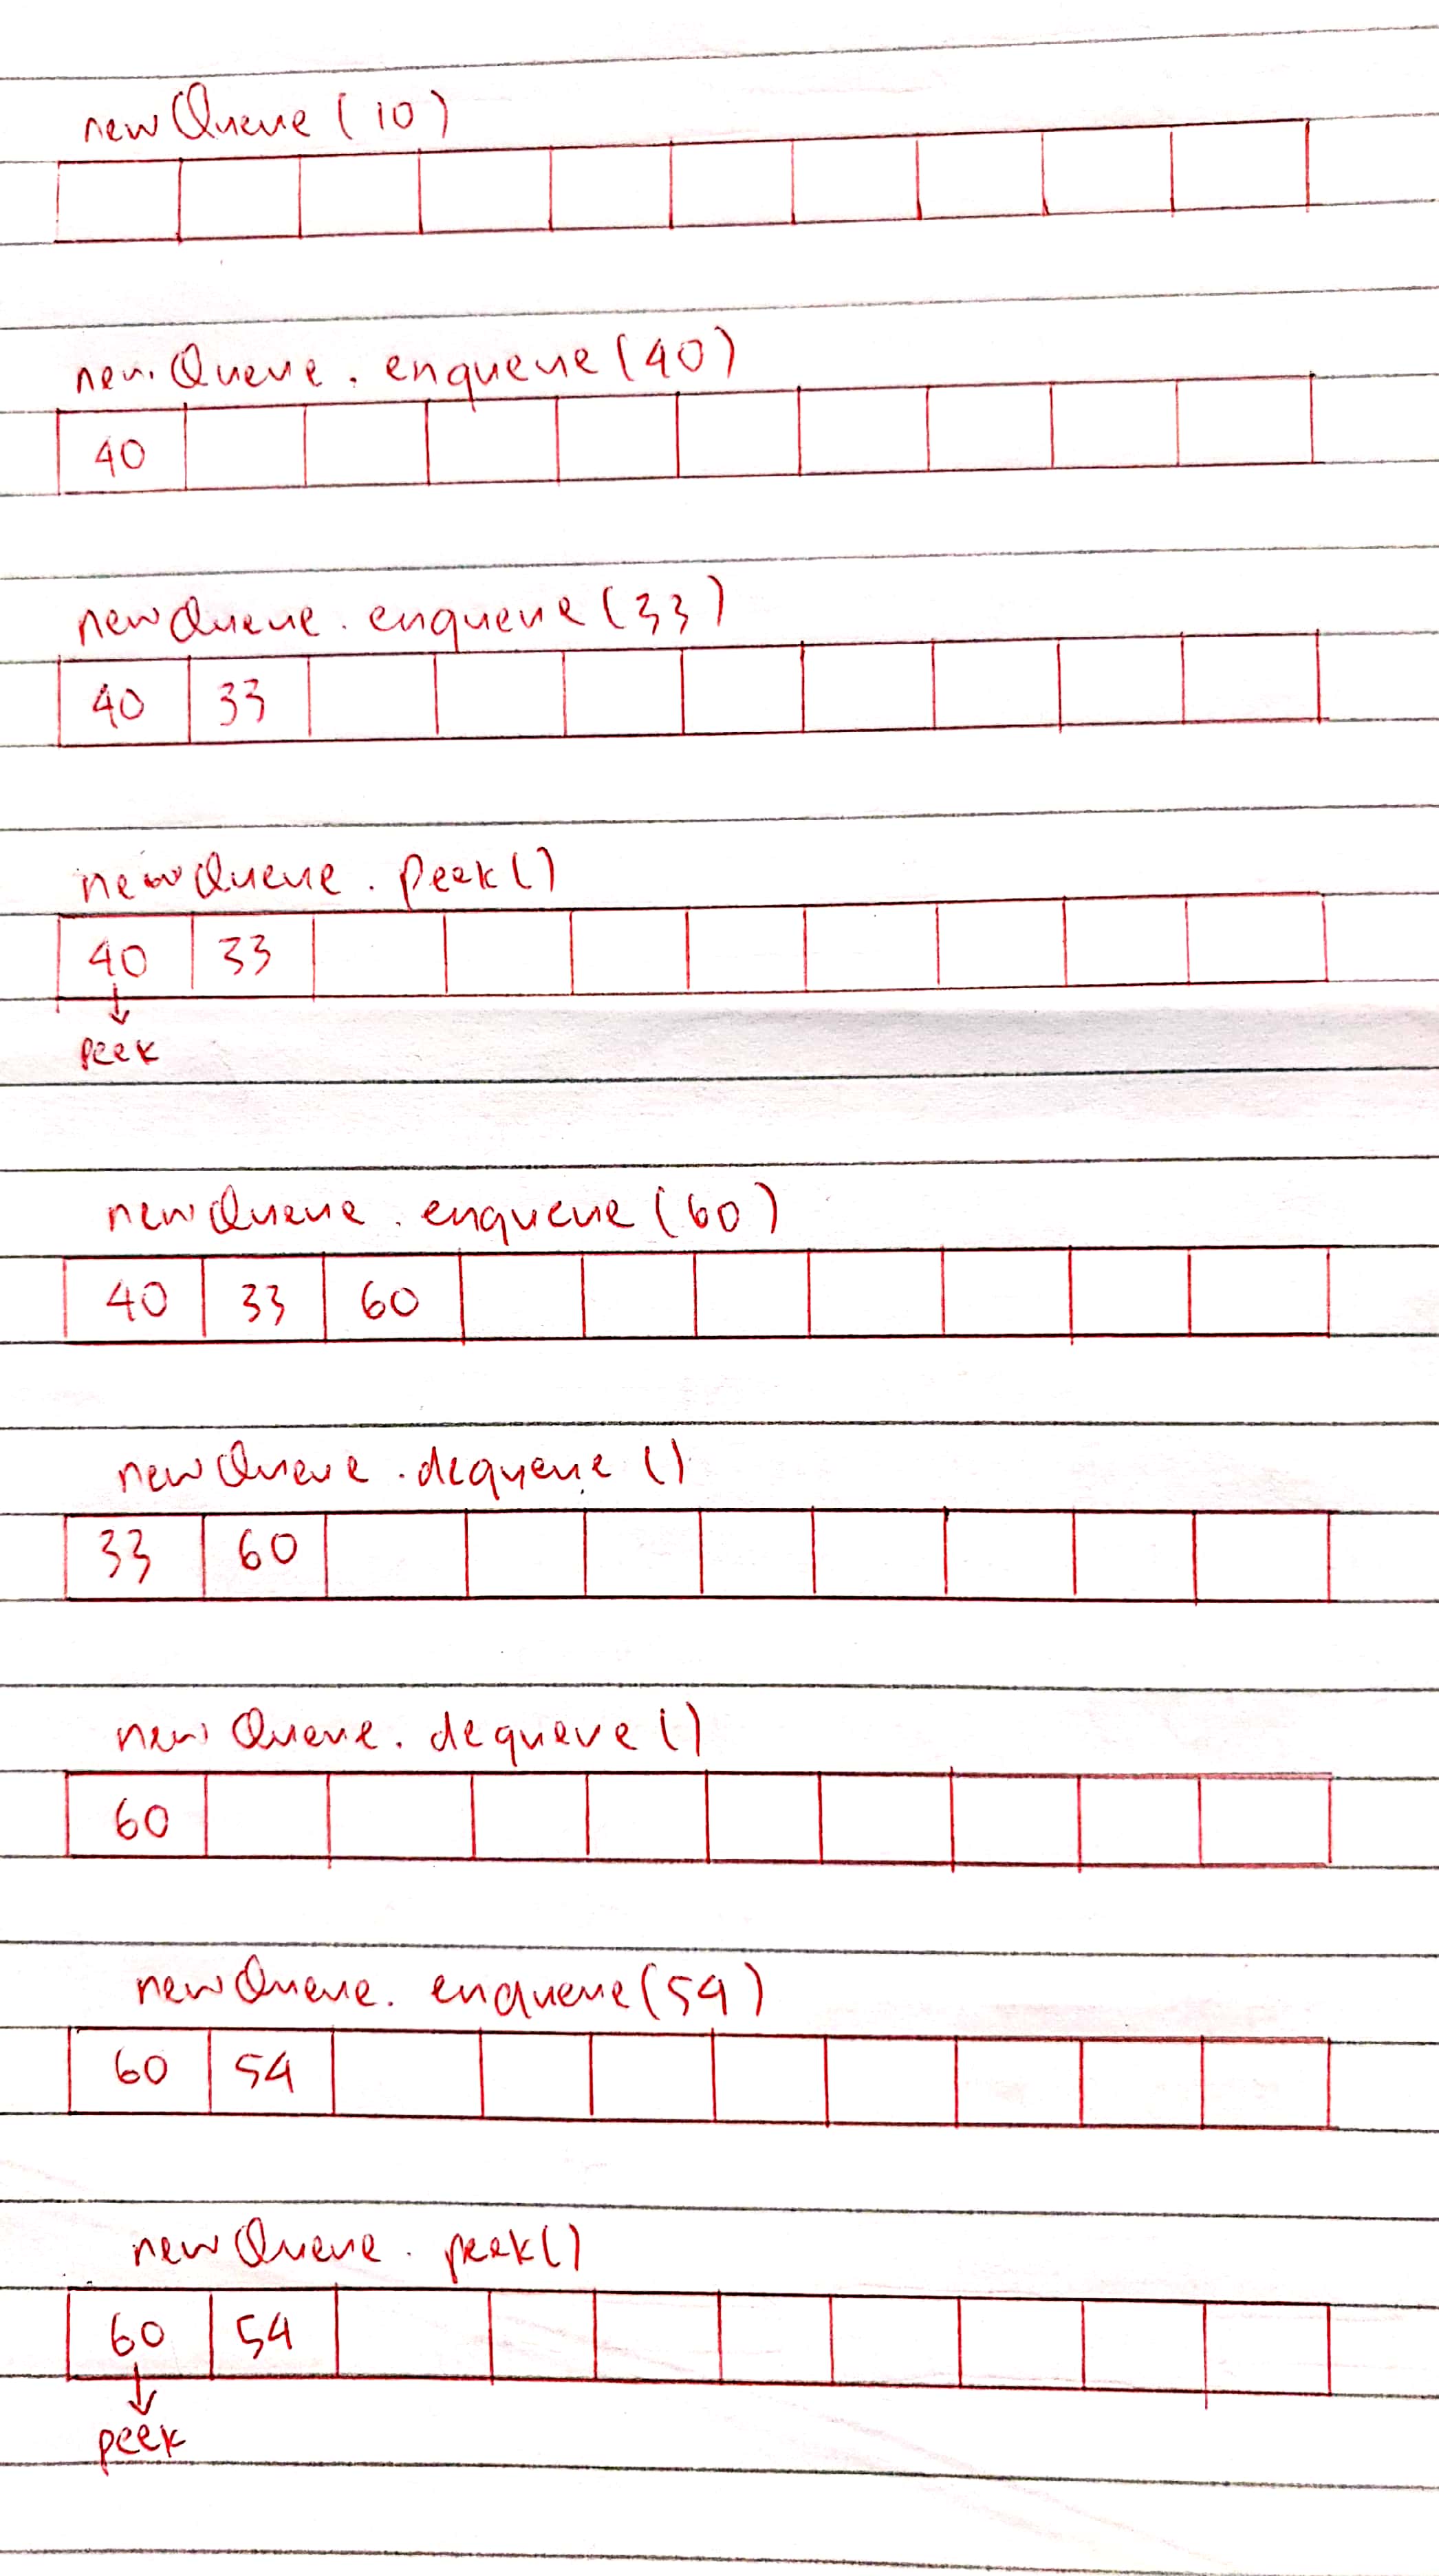 newQueue (10)
newQueue . enqueue (40)
40
newQueue . enqueue (33)
40 33
newQueue . Peek ()
40 33
Peek
newQueue . enqueue (60)
40 33 60
newQueue . dequeue ()
33 60
newQueue . dequeue ()
60
newQueue . enqueue (54)
60 54
newQueue . peek ()
60 54
peek